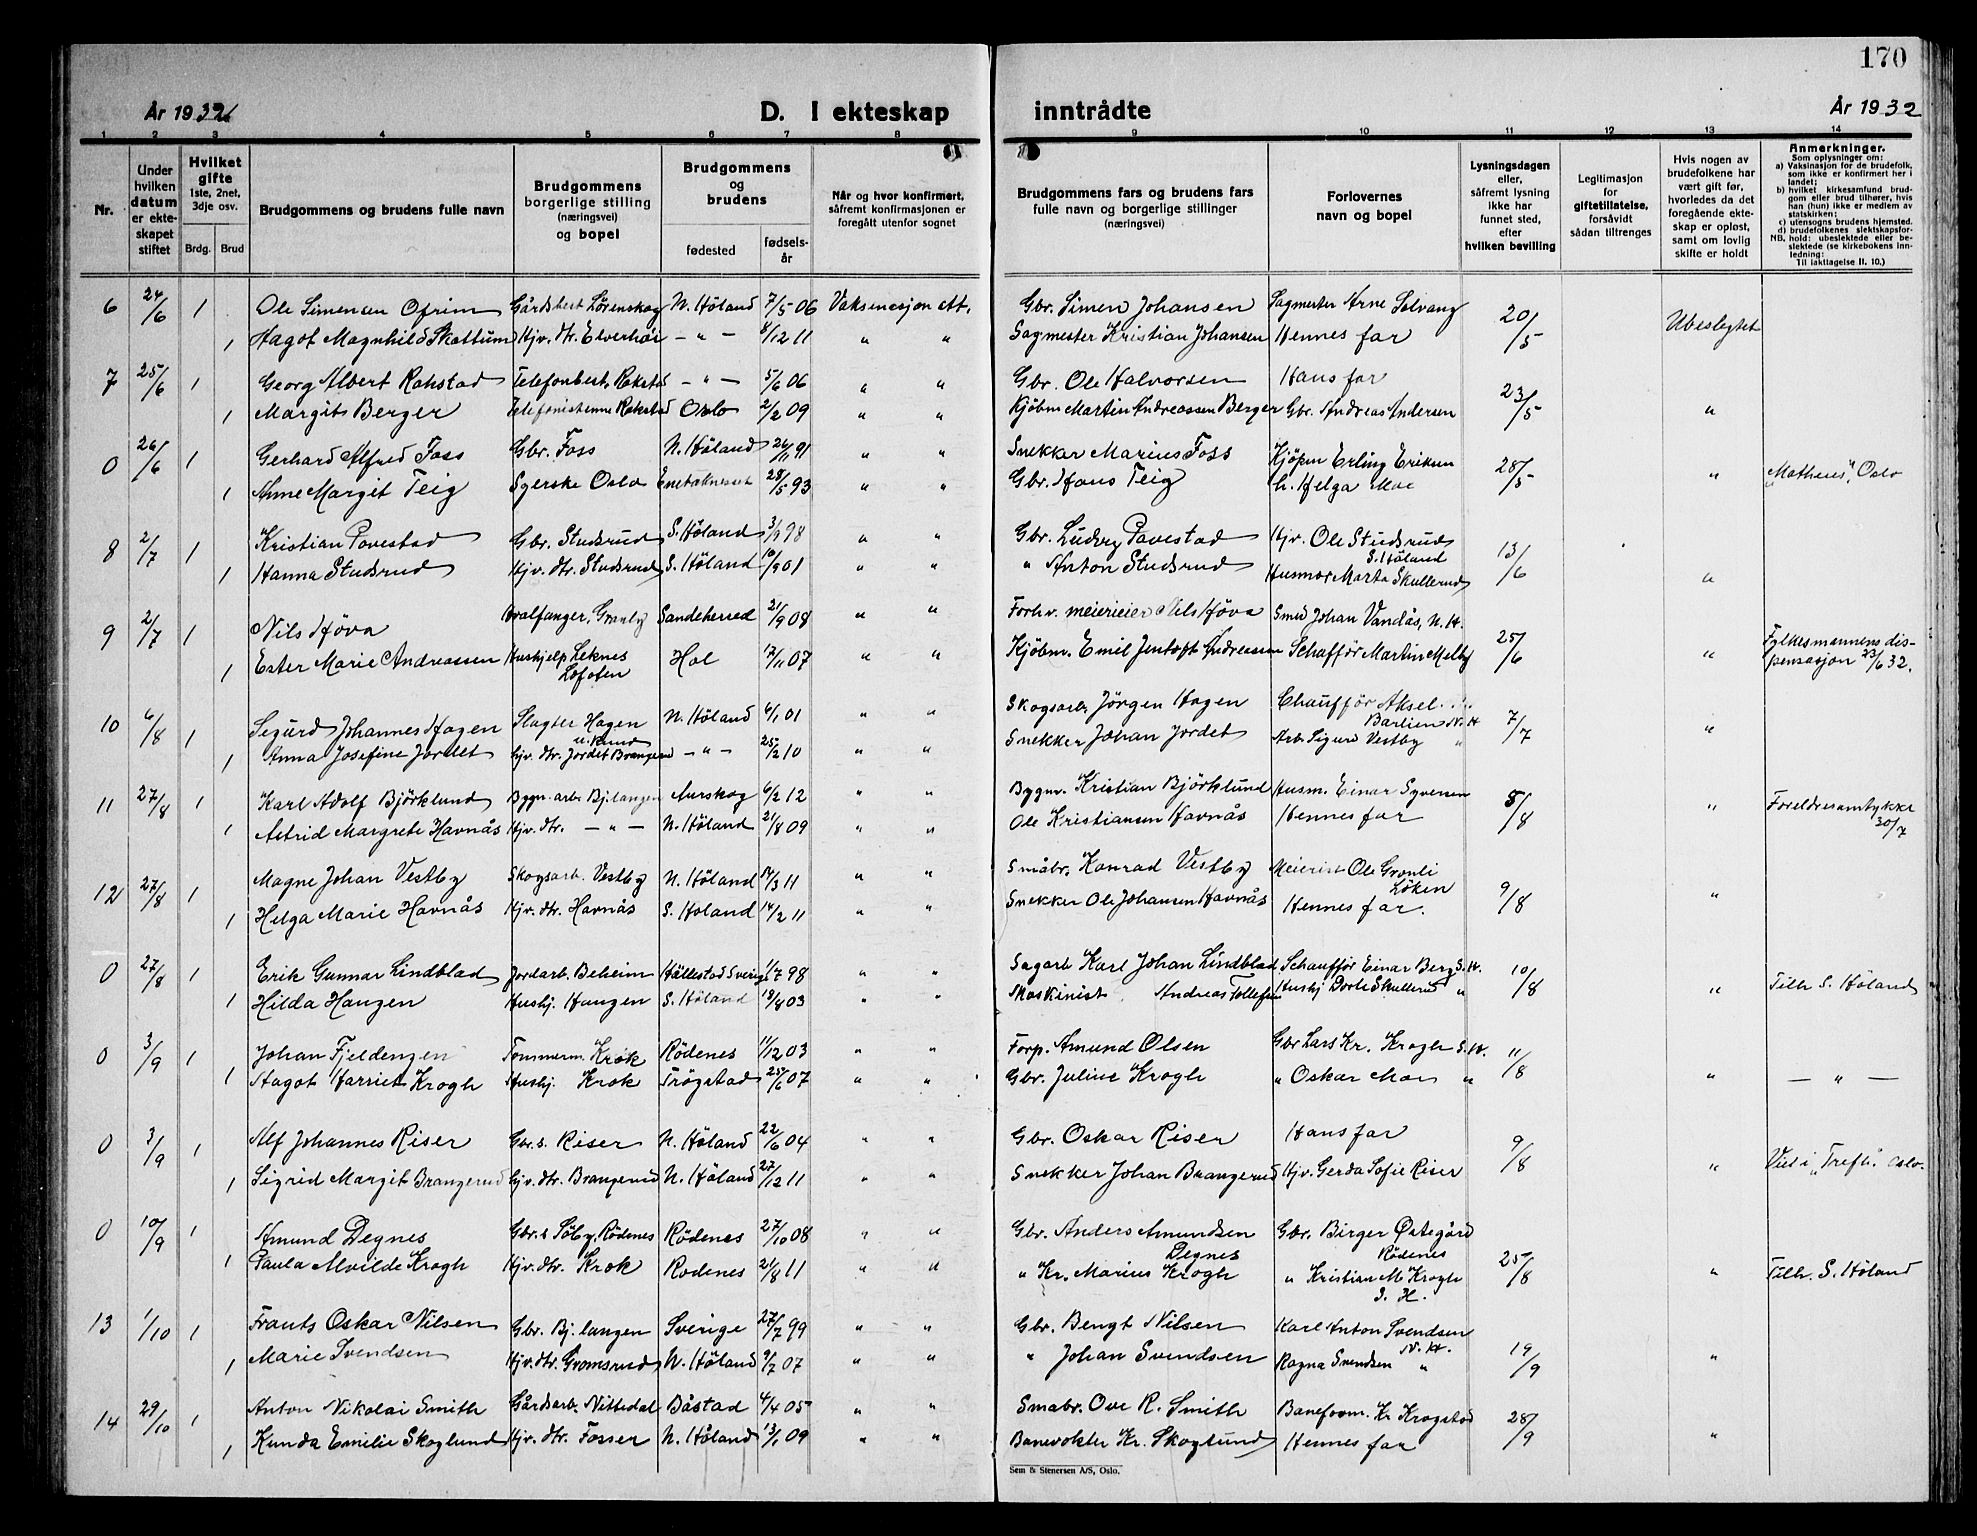 170
År 1932
D. I ekteskap inntrådte
År 1932
1 2 3 4 5 6 7 8 9 10 11 12 13 14
Nr.
Under hvilken datum er ekte-skapet stiftet
Hvilket gifte 1ste, 2net, 3dje osv.
Brdg. Brud
Brudgommens og brudens fulle navn
Brudgommens borgerlige stilling (næringsvei) og bopel
Brudgommens og brudens
fødested
fødsels-år
Når og hvor konfirmert, såfremt konfirmasjonen er foregått utenfor sognet
Brudgommens fars og brudens fars fulle navn og borgerlige stillinger (næringsvei)
Forlovernes navn og bopel
Lysningsdagen eller, såfremt lysning ikke har funnet sted, efter hvilken bevilling
Legitimasjon for giftetillatelse, forsåvidt sådan tiltrenges
Hvis nogen av brudefolkene har vært gift før, hvorledes da det foregående ekte-skap er opløst, samt om lovlig skifte er holdt
Anmerkninger.
Som oplysninger om:
a) Vaksinasjon for de brudefolk, som ikke er konfirmert her i landet;
b) hvilket kirkesamfund brud-gom eller brud tilhører, hvis han (hun) ikke er medlem av statskirken;
c) utensogns brudens hjemsted.
d) brudefolkenes slektskapsfor-hold: ubeslektede eller be-slektede (se kirkebokens inn-ledning:
NB.
Til iakttagelse II. 10.)
6 24/6 1 Ole Simensen Ofrim Gårdsbest. Lörenskog N. Höland 7/5 06 Vaksinasjon att. Gbr. Simen Johansen Sagmester Arne Solvang 20/5 Ubeslegtet
1 Aagot Magnhild Skattum Hjv. dtr. Elverhöi - " - 8/12 11 " " Sagmester Kristian Johansen Hennes far
7 25/6 1 Georg Albert Rakstad Telefonbest. Rakstad - " - 5/6 06 " " Gbr. Ole Halvorsen Hans far 23/5 "
1 Margit Berger Telefonistinne Rakstad Oslo 2/2 09 " " Kjöbm. Martin Andreassen Berger Gbr. Andreas Andersen
0 26/6 1 Gerhard Alfred Foss Gbr. Foss N. Höland 26/11 91 " " Snekker Marius Foss Kjöpm Erling Eriksen 28/5 " "Matheus", Oslo
1 Anne Margit Teig Syerske Oslo Enebaknesset 28/5 93 " " Gbr. Hans Teig h. Helga Moe
8 2/7 1 Kristian Tovestad Gbr. Studsrud S. Höland 3/1 98 " " Gbr. Ludvig Tovestad Hjv. Ole Studsrud S. Höland 13/6 "
1 Hanna Studsrud Hjv. dtr. Studsrud S. Höland 10/9 01 " " " Anton Studsrud Husmor Marta Skullerud
9 2/7 1 Nils Höva Hvalfanger, Granby Sandeherred 21/9 08 " " Forhv. meierieier Nils Höva Smed Johan Vandås, N. H. 25/6 " Fylkesmannens dis-
1 Ester Marie Andreassen Hushjelp Leknes Lofoten Hol 17/11 07 " " Kjöbm. Emil Jentoft Andreassen Schafför Martin Melby pensasjon 23/6 32.
10 6/8 1 Sigurd Johannes Hagen Slagter Hagen u. Rund N. Höland 6/1 01 " " Skogsarb. Jörgen Hagen Chaufför Aksel Barlien N. H. 7/7 "
1 Anna Josefine Jordet hjv. dtr. Jordet Brangerud - " - 25/2 10 " " Snekker Johan Jordet Arb. Sigurd Vestby "
11 27/8 1 Karl Adolf Björklund Bygn. arb. Bj.langen Aurskog 6/2 12 " " Bygnv. Kristian Björklund Husm. Einar Syversen 5/8 " Foreldresamtykke
1 Astrid Margrete Havnås Hjv. dtr. - " - N. Höland 21/8 09 " " Ole Kristiansen Havnås Hennes far 30/7
12 27/8 1 Magne Johan Vestby Skogsarb. Vestby N. Höland 14/3 11 " " Småbr. Konrad Vestby Meierist Ole Gronli Löken 9/8 "
1 Helga Marie Havnås Hjv. dtr. Havnås S. Holand 14/2 11 " " Snekker Ole Johansen Havnås Hennes far.
0 27/8 1 Erik Gunnar Lindblad Jordarb. Beheim Hällestad Sverige 11/7 98 " " Sagarb Karl Johan Lindblad Schafför Einar Berg S. H. 10/8 " Tilh S. Höland
1 Hilda Haugen Hushj. Haugen S. Höland 19/8 03 " " Maskinist Andreas Tollefsen Hushj Dorte Skullerud "
0 3/9 1 Johan Fjeldengen Tommerm. Krok Rödenes 11/12 03 " " Forp. Amund Olsen Gbr Lars Kr. Krogh S. H. 11/8
1 Aagot Harriet Krogh Hushj. Krok Trögstad 25/6 07 " " Gbr. Julius Krogh " Oskar Moe " " - " -
0 3/9 1 Alf Johannes Riser Gbr. s. Riser N. Höland 22/6 04 " " Gbr. Oskar Riser Hans far 9/8
1 Sigrid Margit Brangerud hjv. dtr. Brangerud N. Höland 27/12 11 " " Snekker Johan Brangerud Hjv. Gerda Sofie Riser " Viet i "Trefh." Oslo.
0 10/9 1 Amund Degnes Gbr. s Söby, Rödenes Rödenes 27/10 08 " " Gbr. Anders Amundsen Degnes Gbr. Birger Østegård Rödenes 25/8
1 Paula Alvilde Krogh Hjv. dtr. Krok Rodenes 21/8 11 " " " Kr. Marius Krogh " Kristian M. Krogh S. H. " Tilh. S. Höland
13 1/10 1 Frants Oskar Nilsen Gbr. Bj.langen Sverige 27/7 99 " " Gbr. Bengt Nilsen Karl Anton Svendsen N. H. 19/9 "
1 Marie Svendsen Hjv. dtr. Gromsrud N. Höland 9/7 07 " " " Johan Svendsen Ragna Svendsen "
14 29/10 1 Anton Nikolai Smith Gårdsarb. Nittedal Båstad 4/4 05 " " Smabr. Ove R. Smith Baneform. Kr Krogstad 28/9 "
1 Kunda Emilie Skoglund Hjv. dtr. Fosser N. Höland 13/1 09 " " Banevokter Kr. Skoglund Hennes far
Sem & Stenersen A/S, Oslo.